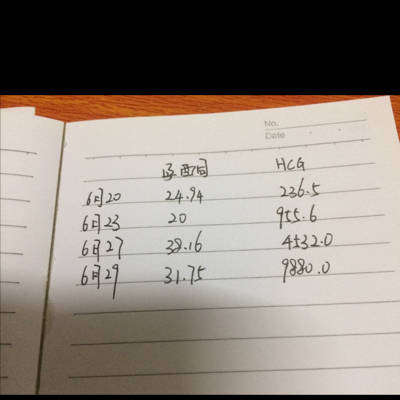 No.
Date
孕酮 HCG
6月20 24.94 236.5
6月23 20 955.6
6月27 38.16 4532.0
6月29 31.75 9880.0